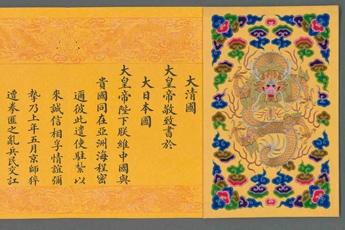 大清國
大皇帝敬致書於
大日本國
大皇帝陛下朕維中國與
貴國同在亞洲海程密
邇彼此遣使駐紮以
來誠信相孚情誼彌
摯乃上年五月京師猝
遭拳匪之亂兵民交訌